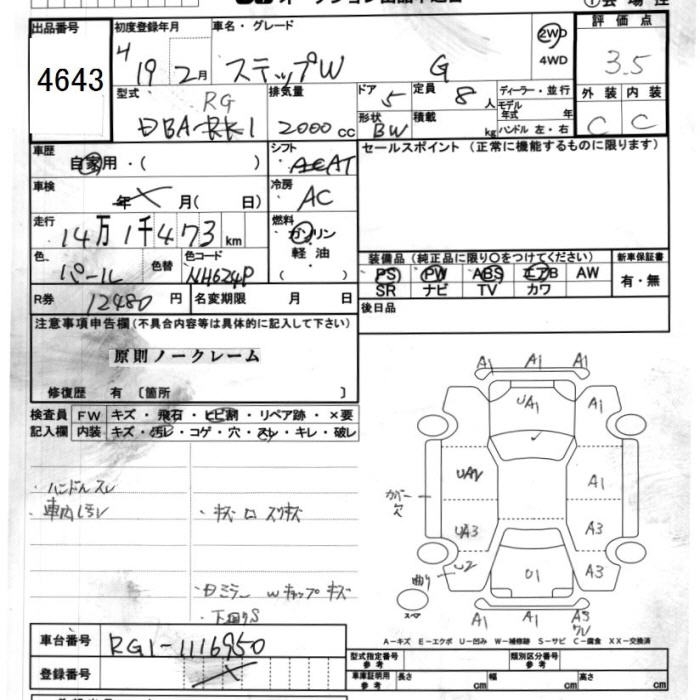 出品番号 初度登録年月 車名・グレード 評価点
4643 19 2月 ステップW G 2WD 4WD 3.5
型式 排気量 ドア 定員 ディーラー・並行 外装 内装
RG
DBA-RK1 2000cc 5 8人 モデル年式 年 C C
形状 BW 積載 kg ハンドル 左・右
車歴 シフト セールスポイント (正常に機能するものに限ります)
自家用・( ) AT
車検 冷房
年 月( 日) AC
走行 燃料
14万1千473km ガソリン
軽油
( )
色 色替 色コード
パール NH624P
装備品 (純正品に限り○をつけてください) 新車保証書
PS PW ABS エアB AW 有・無
SR ナビ TV カワ
R券 12480円 名変期限 月 日
後日品
注意事項申告欄 (不具合内容等は具体的に記入して下さい)
原則ノークレーム
修復歴 有 〔箇所 〕
検査員 FW キズ・飛石・ヒビ割・リペア跡・×要
記入欄 内装 キズ・汚レ・コゲ・穴・スレ・キレ・破レ
ハンドルスレ
車内汚レ
・キズ ロ スリキズ
Wキップ キズ
下回りS
A1 A1 A1
UA1 A1
A1
カバー欠
UA3 A3
曲り U2 U1 A3
スペア
A1 A1 A3
ワレ
A-キズ E-エクボ U-凹み W-補修跡 S-サビ C-腐食 XX-交換済
車台番号 RG1-1116950
登録番号
型式指定番号 参考 類別区分番号 参考
車庫証明用 参考 長さ cm 幅 cm 高さ cm